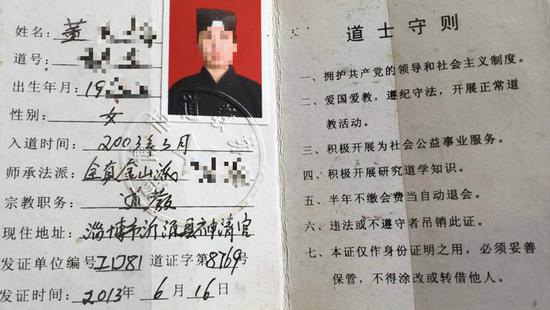 姓名: 董
道号:
出生年月: 19
性别: 女
入道时间: 2003年5月
师承法派: 全真金山派
宗教职务: 道教
现住地址: 淄博市沂源县神清宫
发证单位编号 工口81 道证字第8769号
发证时间: 2013年6月16日
道士守则
一、拥护共产党的领导和社会主义制度。
二、爱国爱教，遵纪守法，开展正常道
教活动。
三、积极开展为社会公益事业服务。
四、积极开展研究道学知识。
五、半年不缴会费当自动退会。
六、违法或不遵守者吊销此证。
七、本证仅作身份证明之用，必须妥善
保管，不得涂改或转借他人。